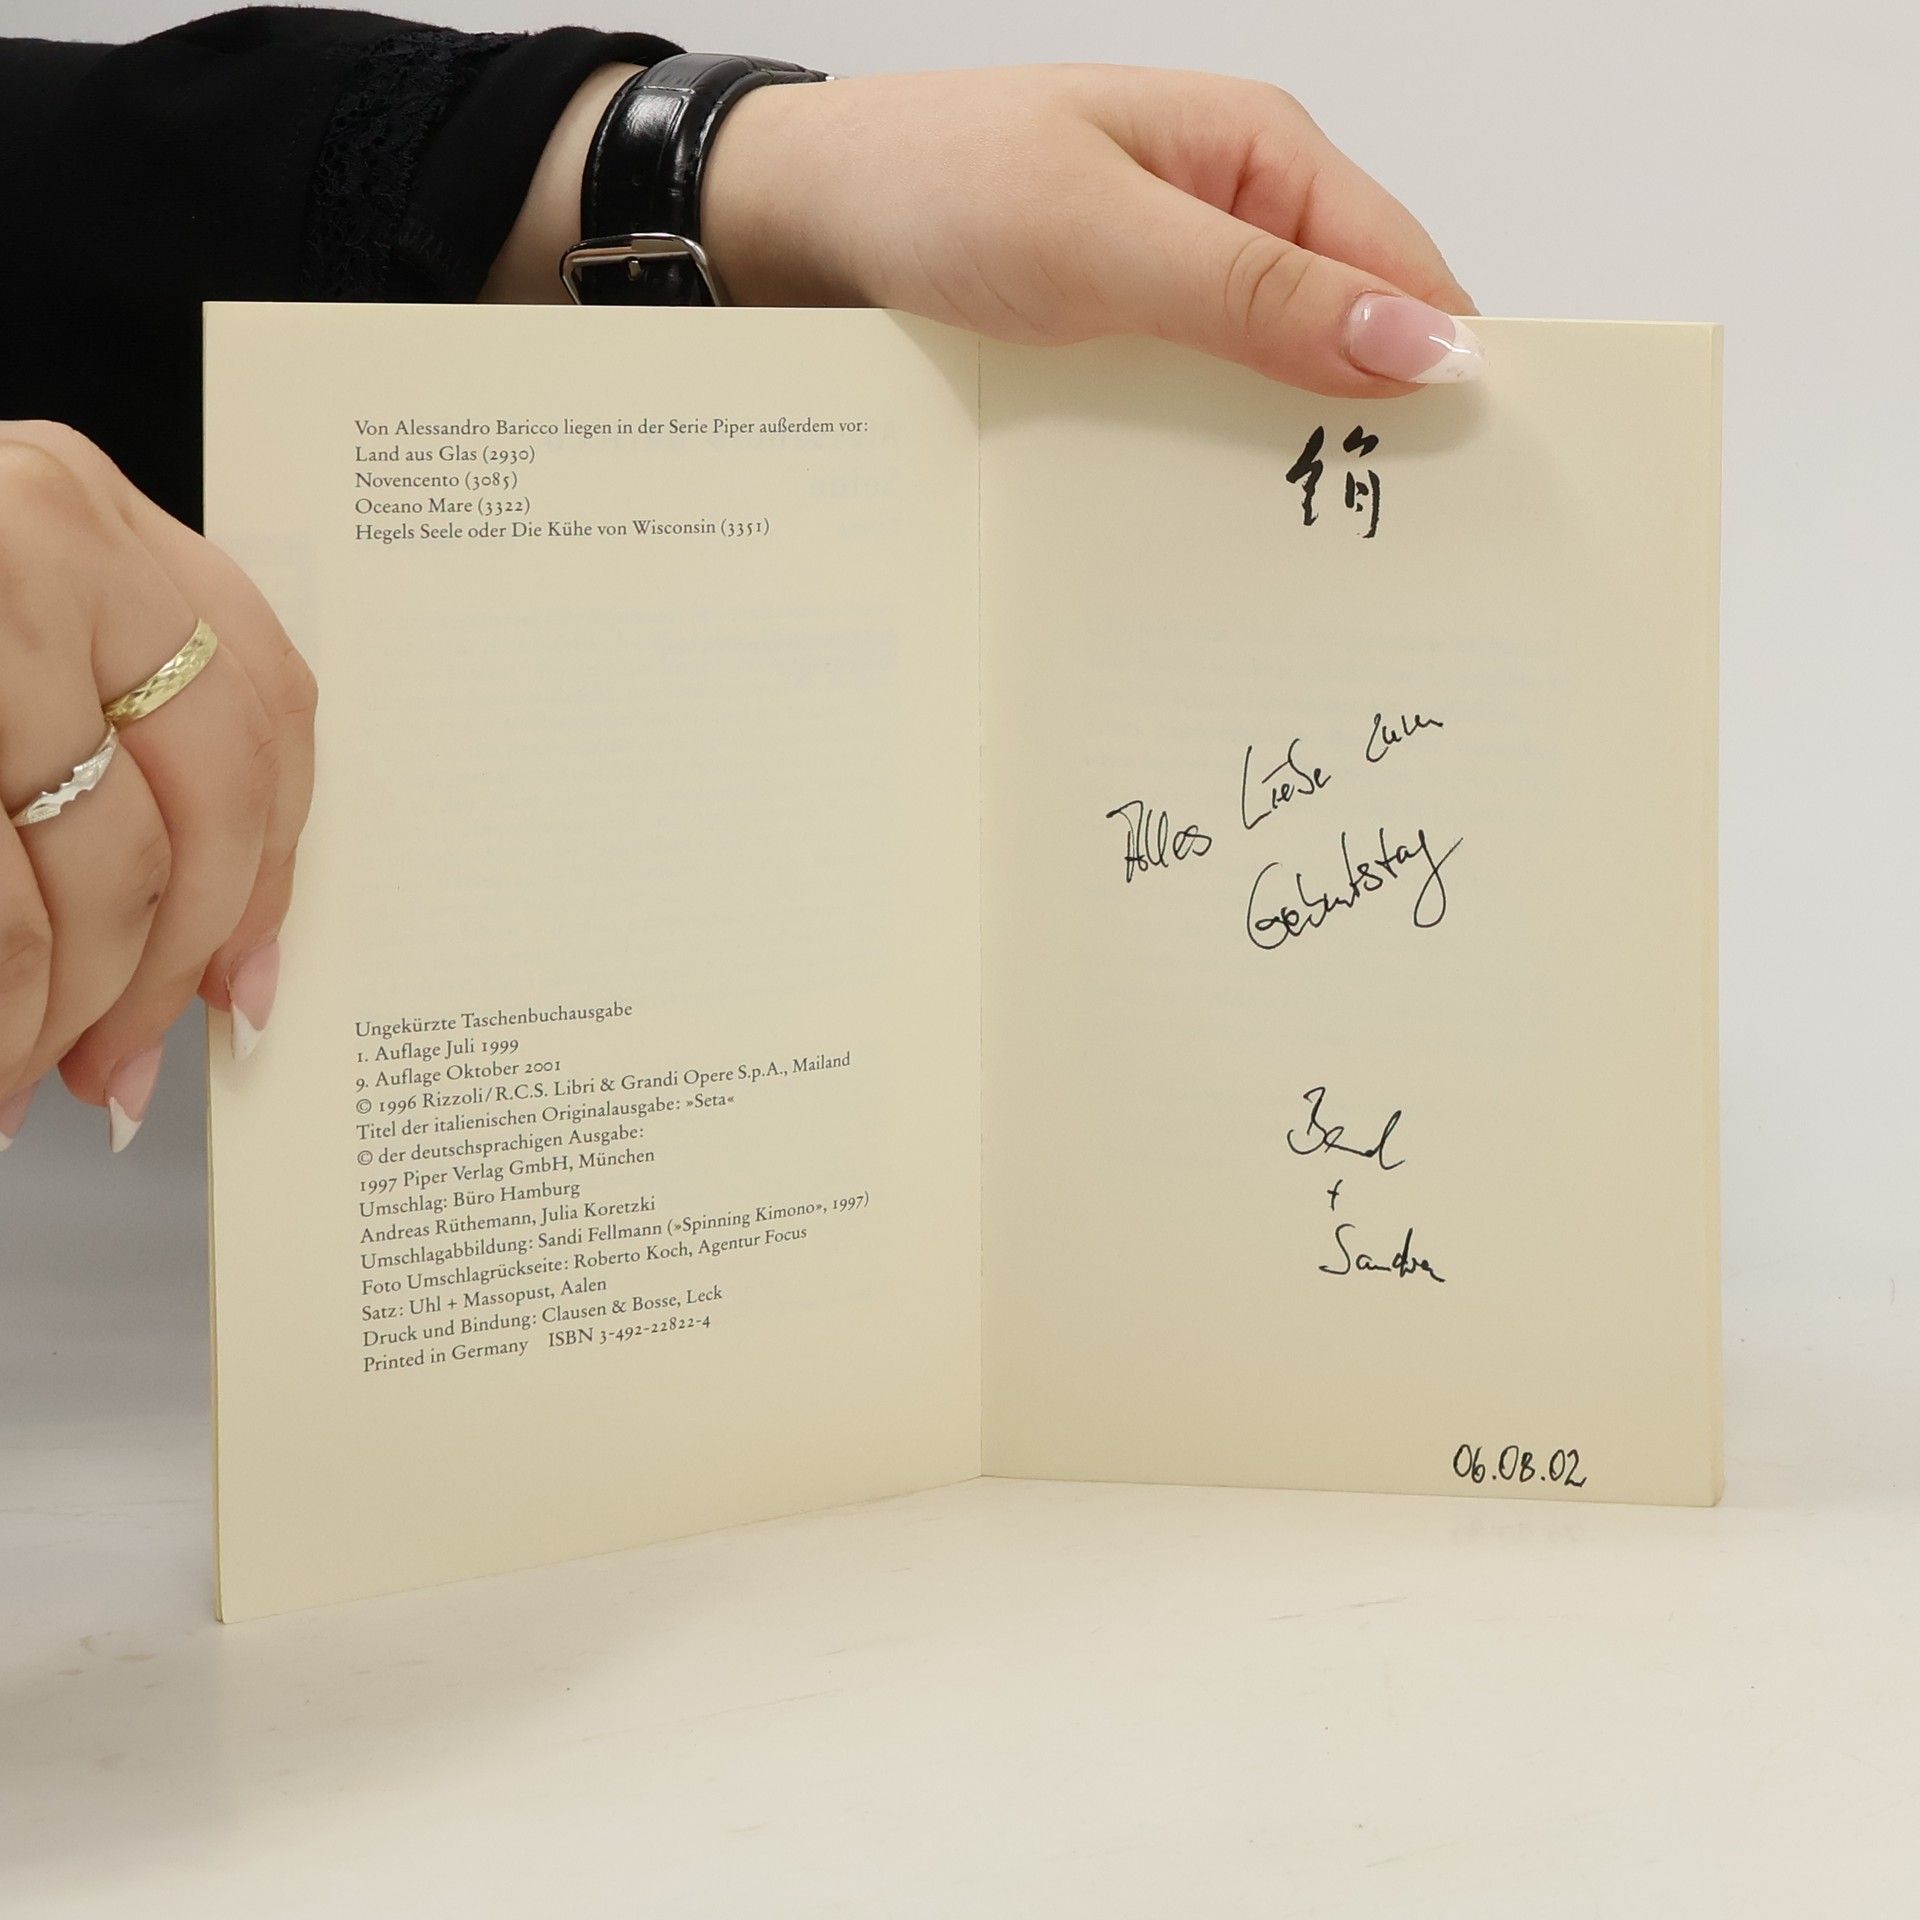 Von Alessandro Baricco liegen in der Serie Piper außerdem vor:
Land aus Glas (2930)
Novencento (3085)
Oceano Mare (3322)
Hegels Seele oder Die Kühe von Wisconsin (3351)
Ungekürzte Taschenbuchausgabe
1. Auflage Juli 1999
9. Auflage Oktober 2001
© 1996 Rizzoli/R.C.S. Libri & Grandi Opere S.p.A., Mailand
Titel der italienischen Originalausgabe: »Seta«
© der deutschsprachigen Ausgabe:
1997 Piper Verlag GmbH, München
Umschlag: Büro Hamburg
Andreas Rüthemann, Julia Koretzki
Umschlagabbildung: Sandi Fellmann (»Spinning Kimono», 1997)
Foto Umschlagrückseite: Roberto Koch, Agentur Focus
Satz: Uhl + Massopust, Aalen
Druck und Bindung: Clausen & Bosse, Leck
Printed in Germany ISBN 3-492-22822-4
絹
Alles Liebe zum
Geburtstag
Bernd
+
Sandra
06.08.02